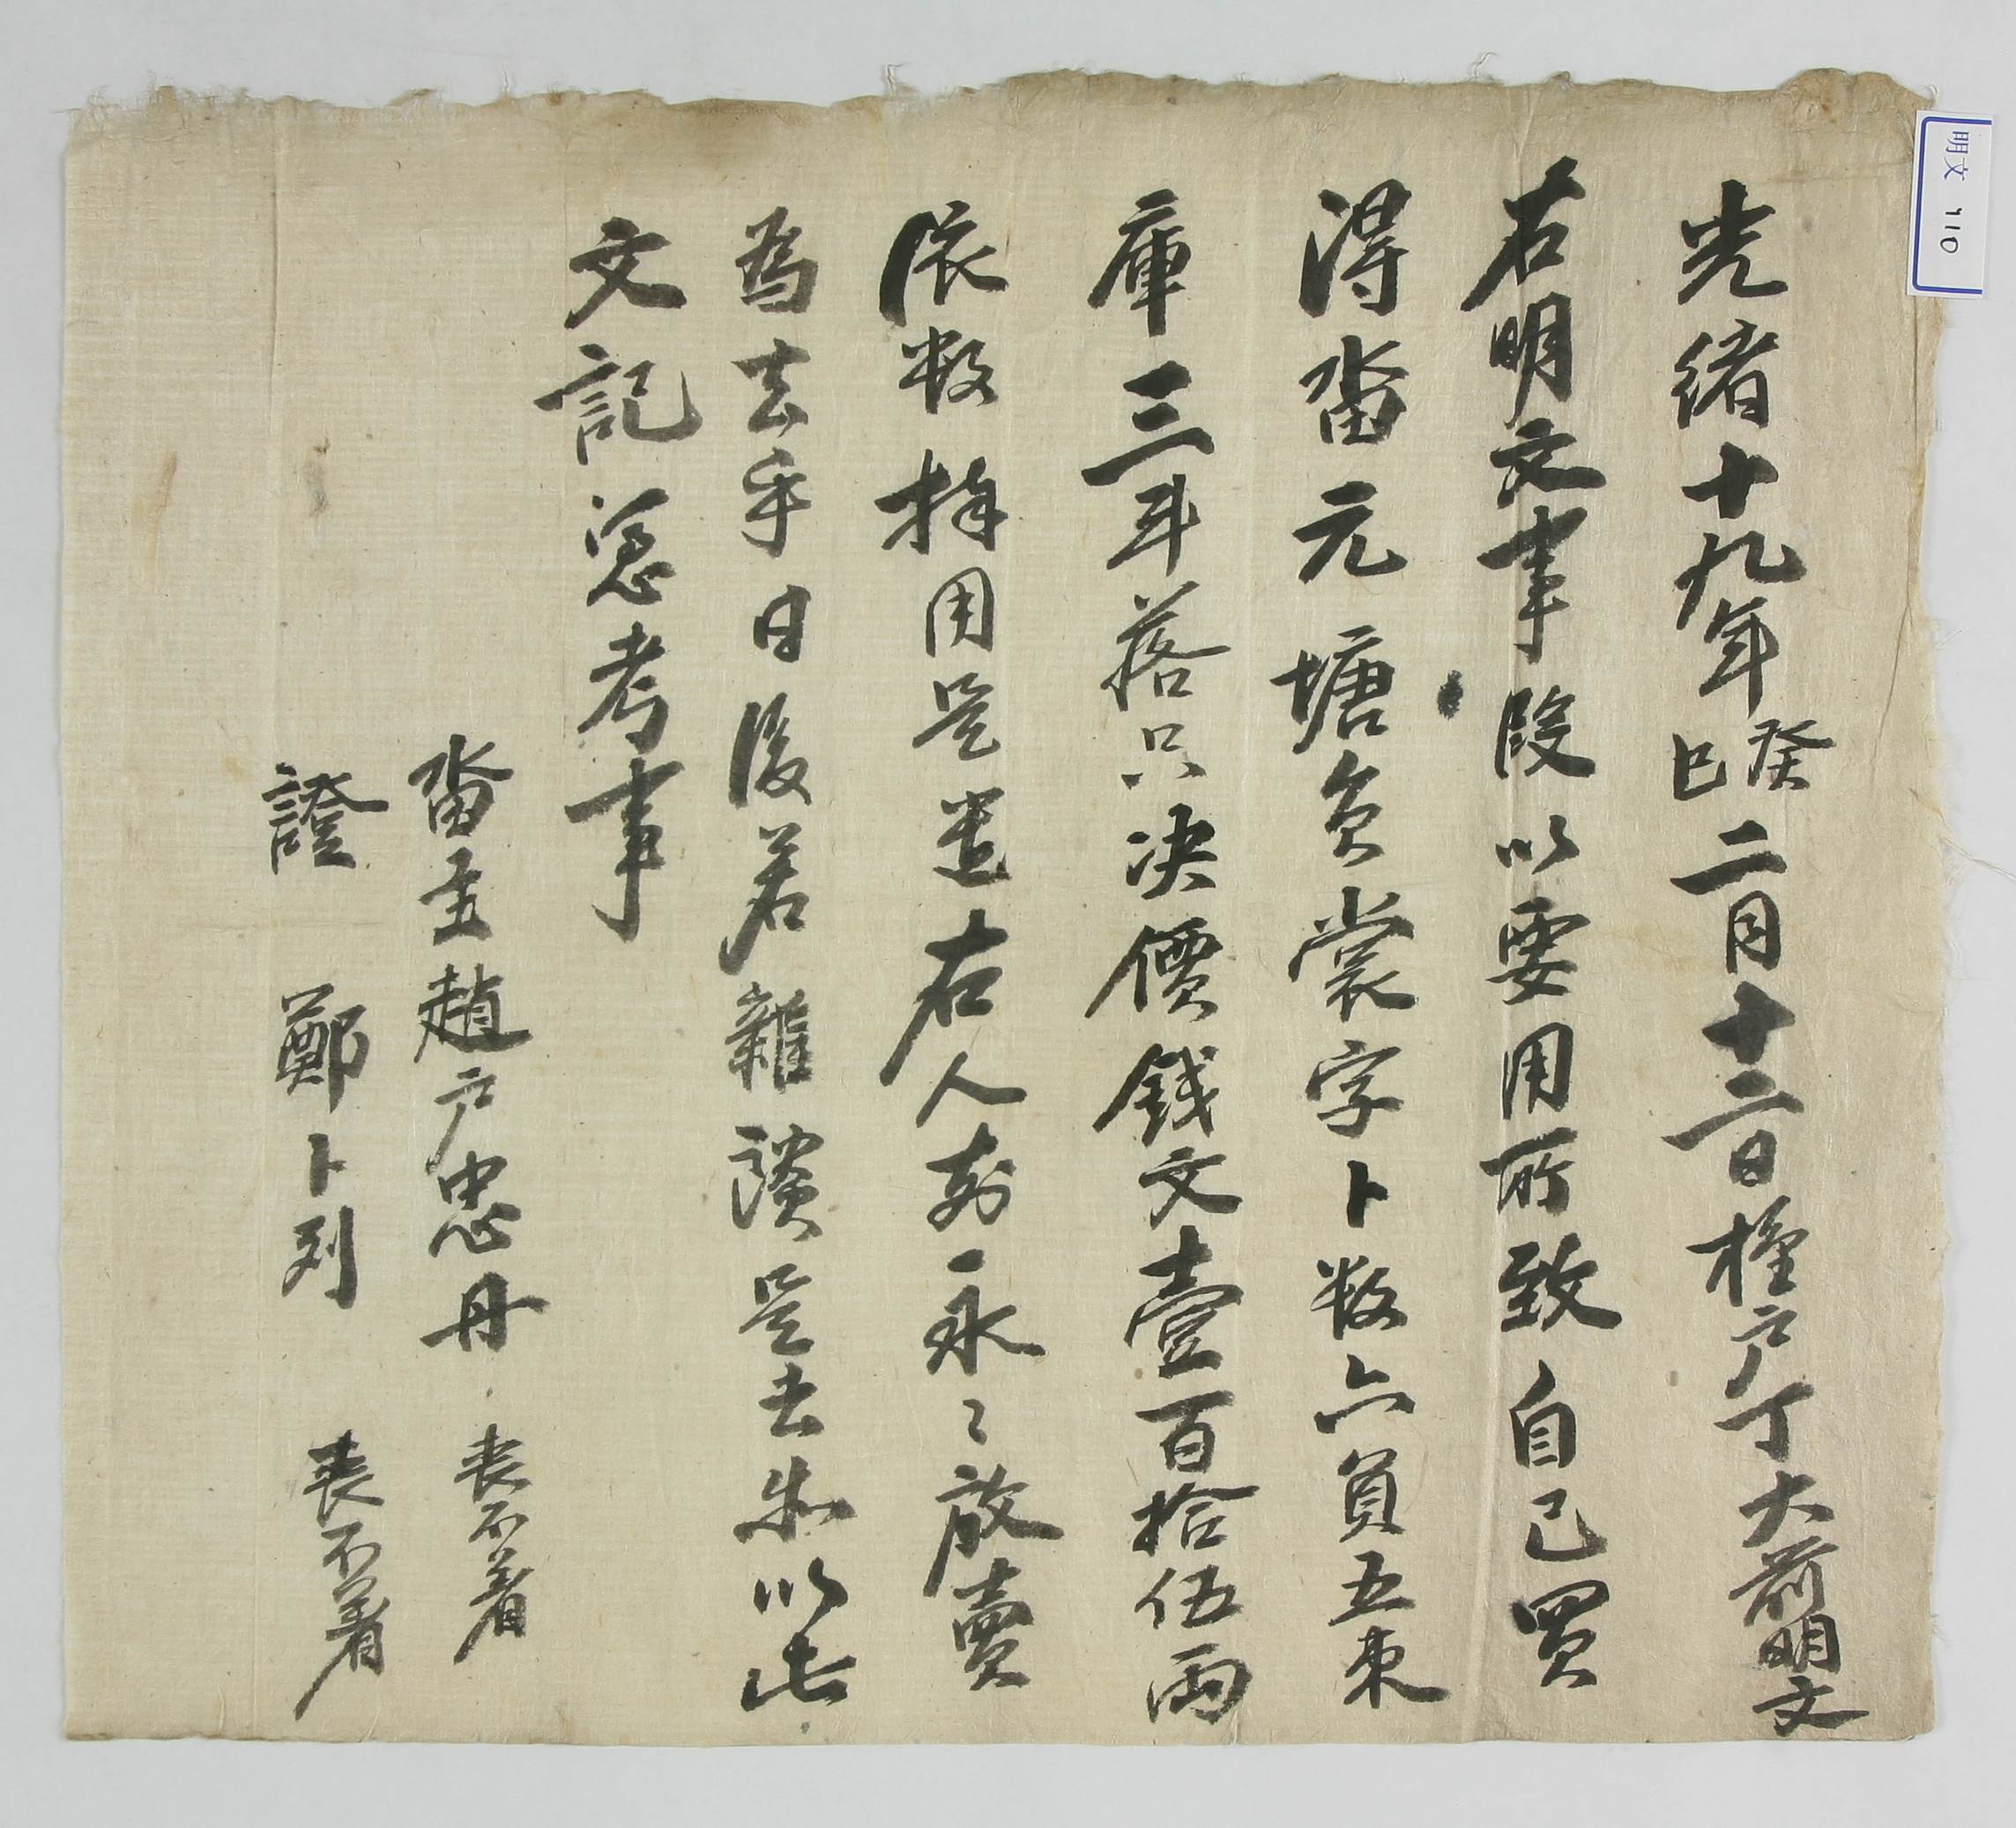 光緒十九年癸巳二月十二日權戶丁大前明文
右明文事段以要用所致自己買
得畓元塘員裳字卜數六負五束
庫三斗落只決價錢文壹百拾伍兩
依數捧用是遣右人前永〻放賣
爲去乎日後若雜談是去等以此
文記憑考事
畓主趙戶忠丹 喪不着
證 鄭卜列 喪不着
明文 710